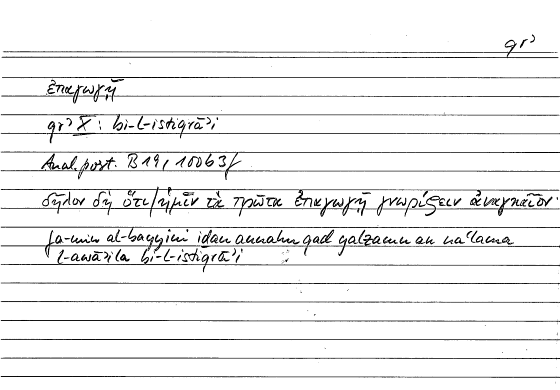 qrʾ
ἐπαγωγῇ
qrʾ X: bi-l-istiqrāʾi
Anal. post. B 19, 100b3f
δῆλον δὴ ὅτι / ἡμῖν τὰ πρῶτα ἐπαγωγῇ γνωρίζειν ἀναγκαῖον·
fa-mina al-bayyini iḏan annahu qad yalzamu an naʿlama
l-awāʾila bi-l-istiqrāʾi